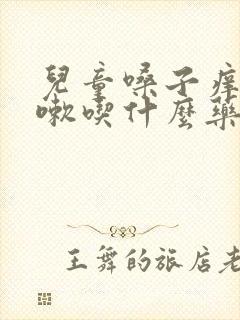 兒童嗓子痒
嗽喫什麼藥
王舞的旅店老